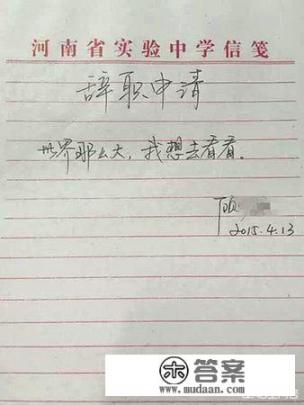 河南省实验中学信笺
辞职申请
世界那么大，我想去看看。
顾
2015.4.13
答案